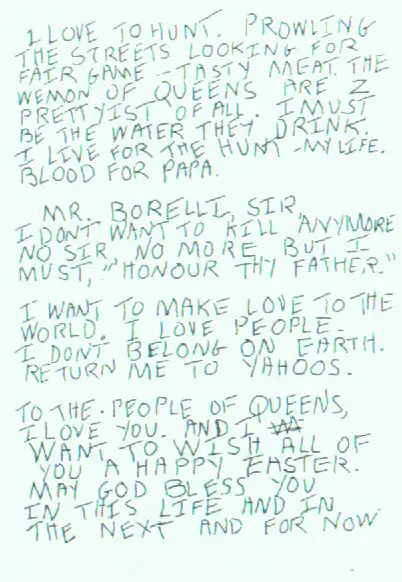 I LOVE TO HUNT. PROWLING
THE STREETS LOOKING FOR
FAIR GAME - TASTY MEAT. THE
WEMON OF QUEENS ARE Z
PRETTYIST OF ALL. I MUST
BE THE WATER THEY DRINK.
I LIVE FOR THE HUNT - MY LIFE.
BLOOD FOR PAPA.
MR. BORELLI, SIR,
I DONT WANT TO KILL ANYMORE
NO SIR, NO MORE BUT I
MUST, "HONOUR THY FATHER."
I WANT TO MAKE LOVE TO THE
WORLD. I LOVE PEOPLE.
I DONT BELONG ON EARTH.
RETURN ME TO YAHOOS.
TO THE PEOPLE OF QUEENS,
I LOVE YOU. AND I
WANT TO WISH ALL OF
YOU A HAPPY EASTER.
MAY GOD BLESS YOU
IN THIS LIFE AND IN
THE NEXT AND FOR NOW